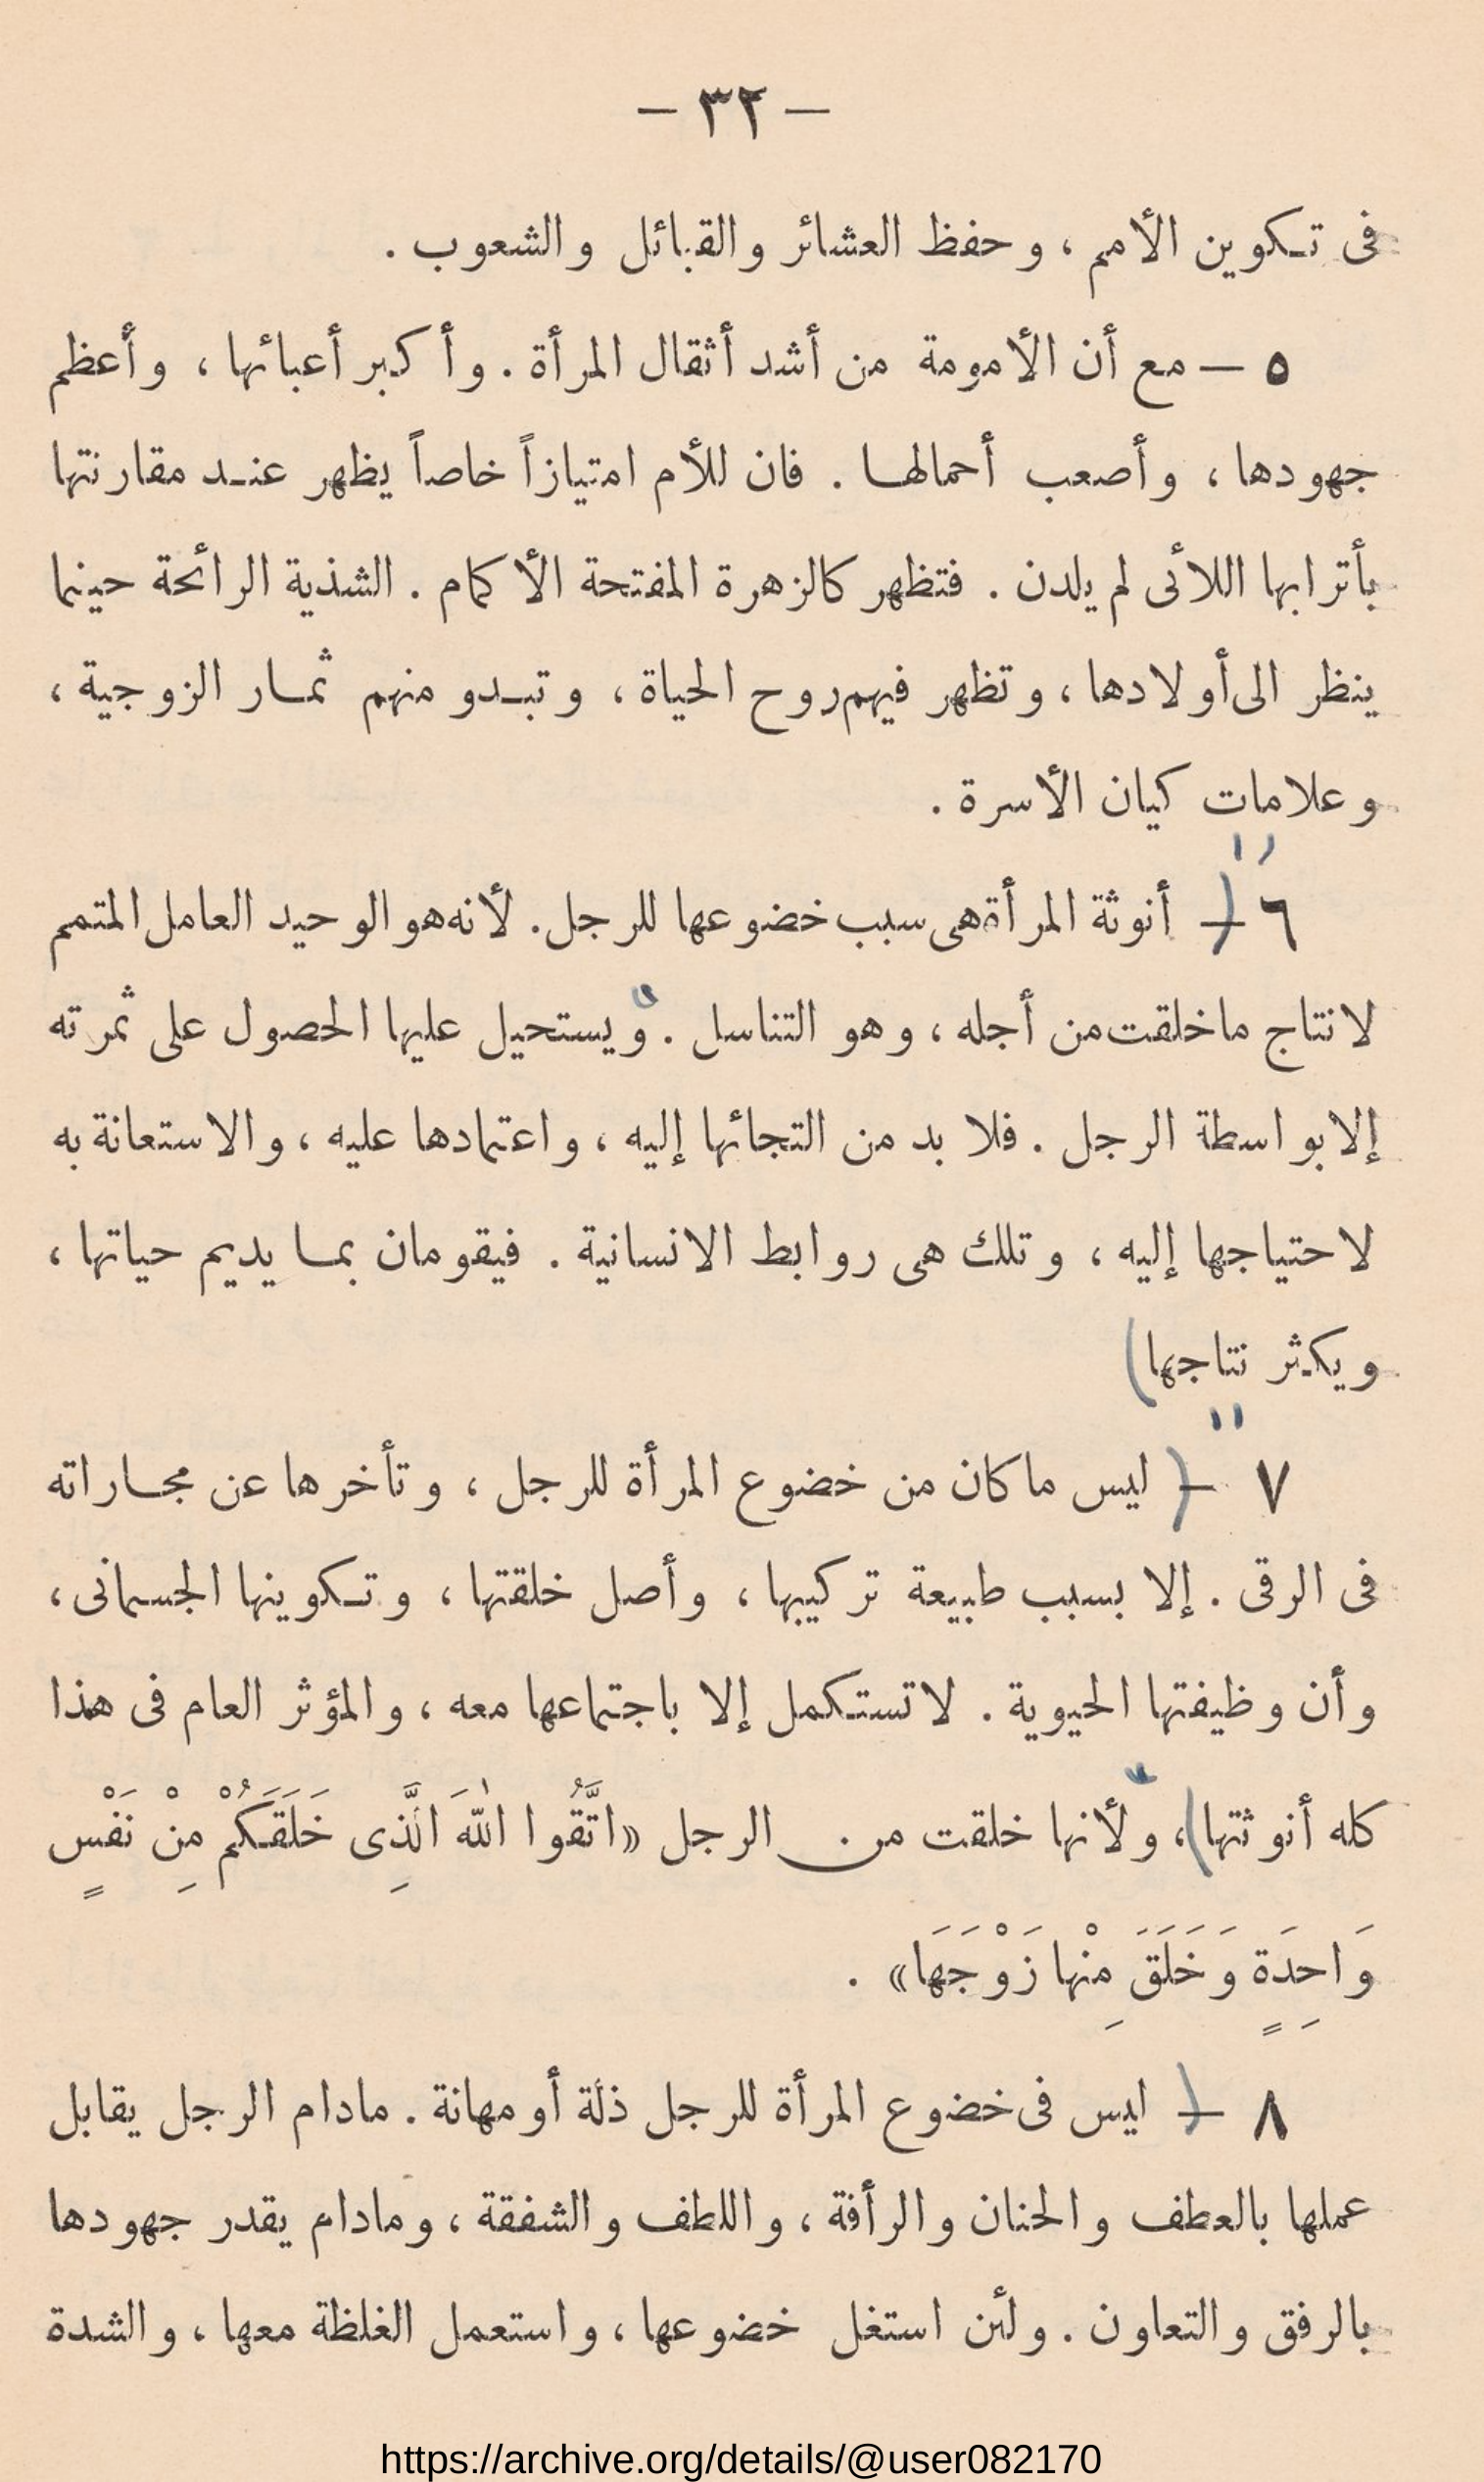 — ٣٢ —
فى تكوين الأمم ، وحفظ العشائر والقبائل والشعوب .
٥ — مع أن الأمومة من أشد أثقال المرأة . وأكبر أعبائها ، وأعظم
جهودها ، وأصعب أحمالها . فان للأم امتيازاً خاصاً يظهر عند مقارنتها
بأترابها اللائى لم يلدن . فتظهر كالزهرة المفتحة الأكمام . الشذية الرائحة حينما
ينظر الى أولادها ، وتظهر فيهم روح الحياة ، وتبدو منهم ثمار الزوجية ،
وعلامات كيان الأسرة .
٦ — ( أنوثة المرأة هى سبب خضوعها للرجل . لأنه هو الوحيد العامل المتمم
لانتاج ما خلقت من أجله ، وهو التناسل . ويستحيل عليها الحصول على ثمرته
إلا بواسطة الرجل . فلا بد من التجائها إليه ، واعتمادها عليه ، والاستعانة به
لاحتياجها إليه ، وتلك هى روابط الانسانية . فيقومان بما يديم حياتها ،
ويكثر نتاجها )
٧ — ( ليس ما كان من خضوع المرأة للرجل ، وتأخرها عن مجاراته
فى الرقى . إلا بسبب طبيعة تركيبها ، وأصل خلقتها ، وتكوينها الجسمانى ،
وأن وظيفتها الحيوية . لا تستكمل إلا باجتماعها معه ، والمؤثر العام فى هذا
كله أنوثتها )، ولأنها خلقت من الرجل «اتَّقُوا اللّٰهَ الَّذِى خَلَقَكُمْ مِنْ نَفْسٍ
وَاحِدَةٍ وَخَلَقَ مِنْها زَوْجَهَا» .
٨ — ( ليس فى خضوع المرأة للرجل ذلة أو مهانة . مادام الرجل يقابل
عملها بالعطف والحنان والرأفة ، واللطف والشفقة ، ومادام يقدر جهودها
بالرفق والتعاون . ولئن استغل خضوعها ، واستعمل الغلظة معها ، والشدة
https://archive.org/details/@user082170